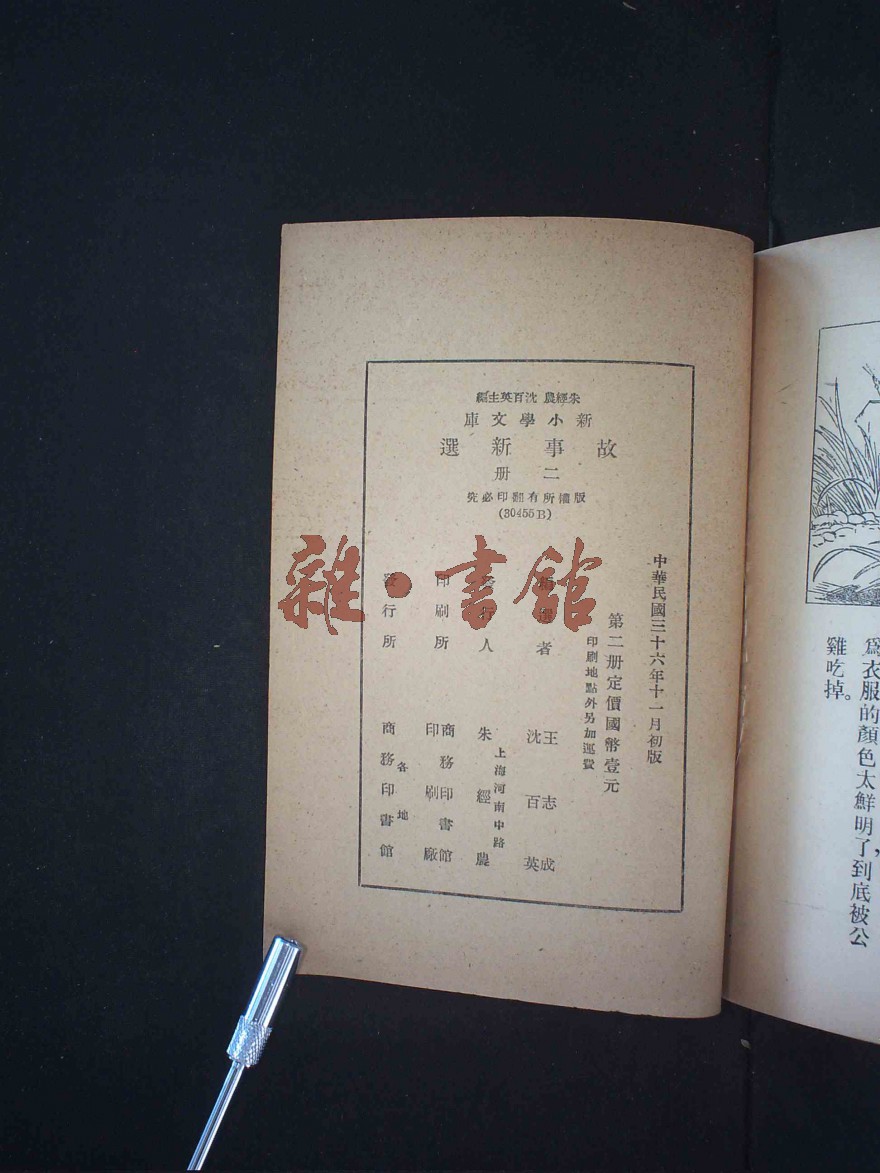 朱經農 沈百英主編
新小學文庫
故事新選
二册
版權所有翻印必究
(30455B)
中華民國三十六年十一月初版
第二册定價國幣壹元
印刷地點外另加運費
編選者 王志成 沈百英
發行人 朱經農
上海河南中路
印刷所 商務印書館印刷廠
發行所 各地商務印書館
雜·書館
爲衣服的顏色太鮮明了，到底被公
雞吃掉。